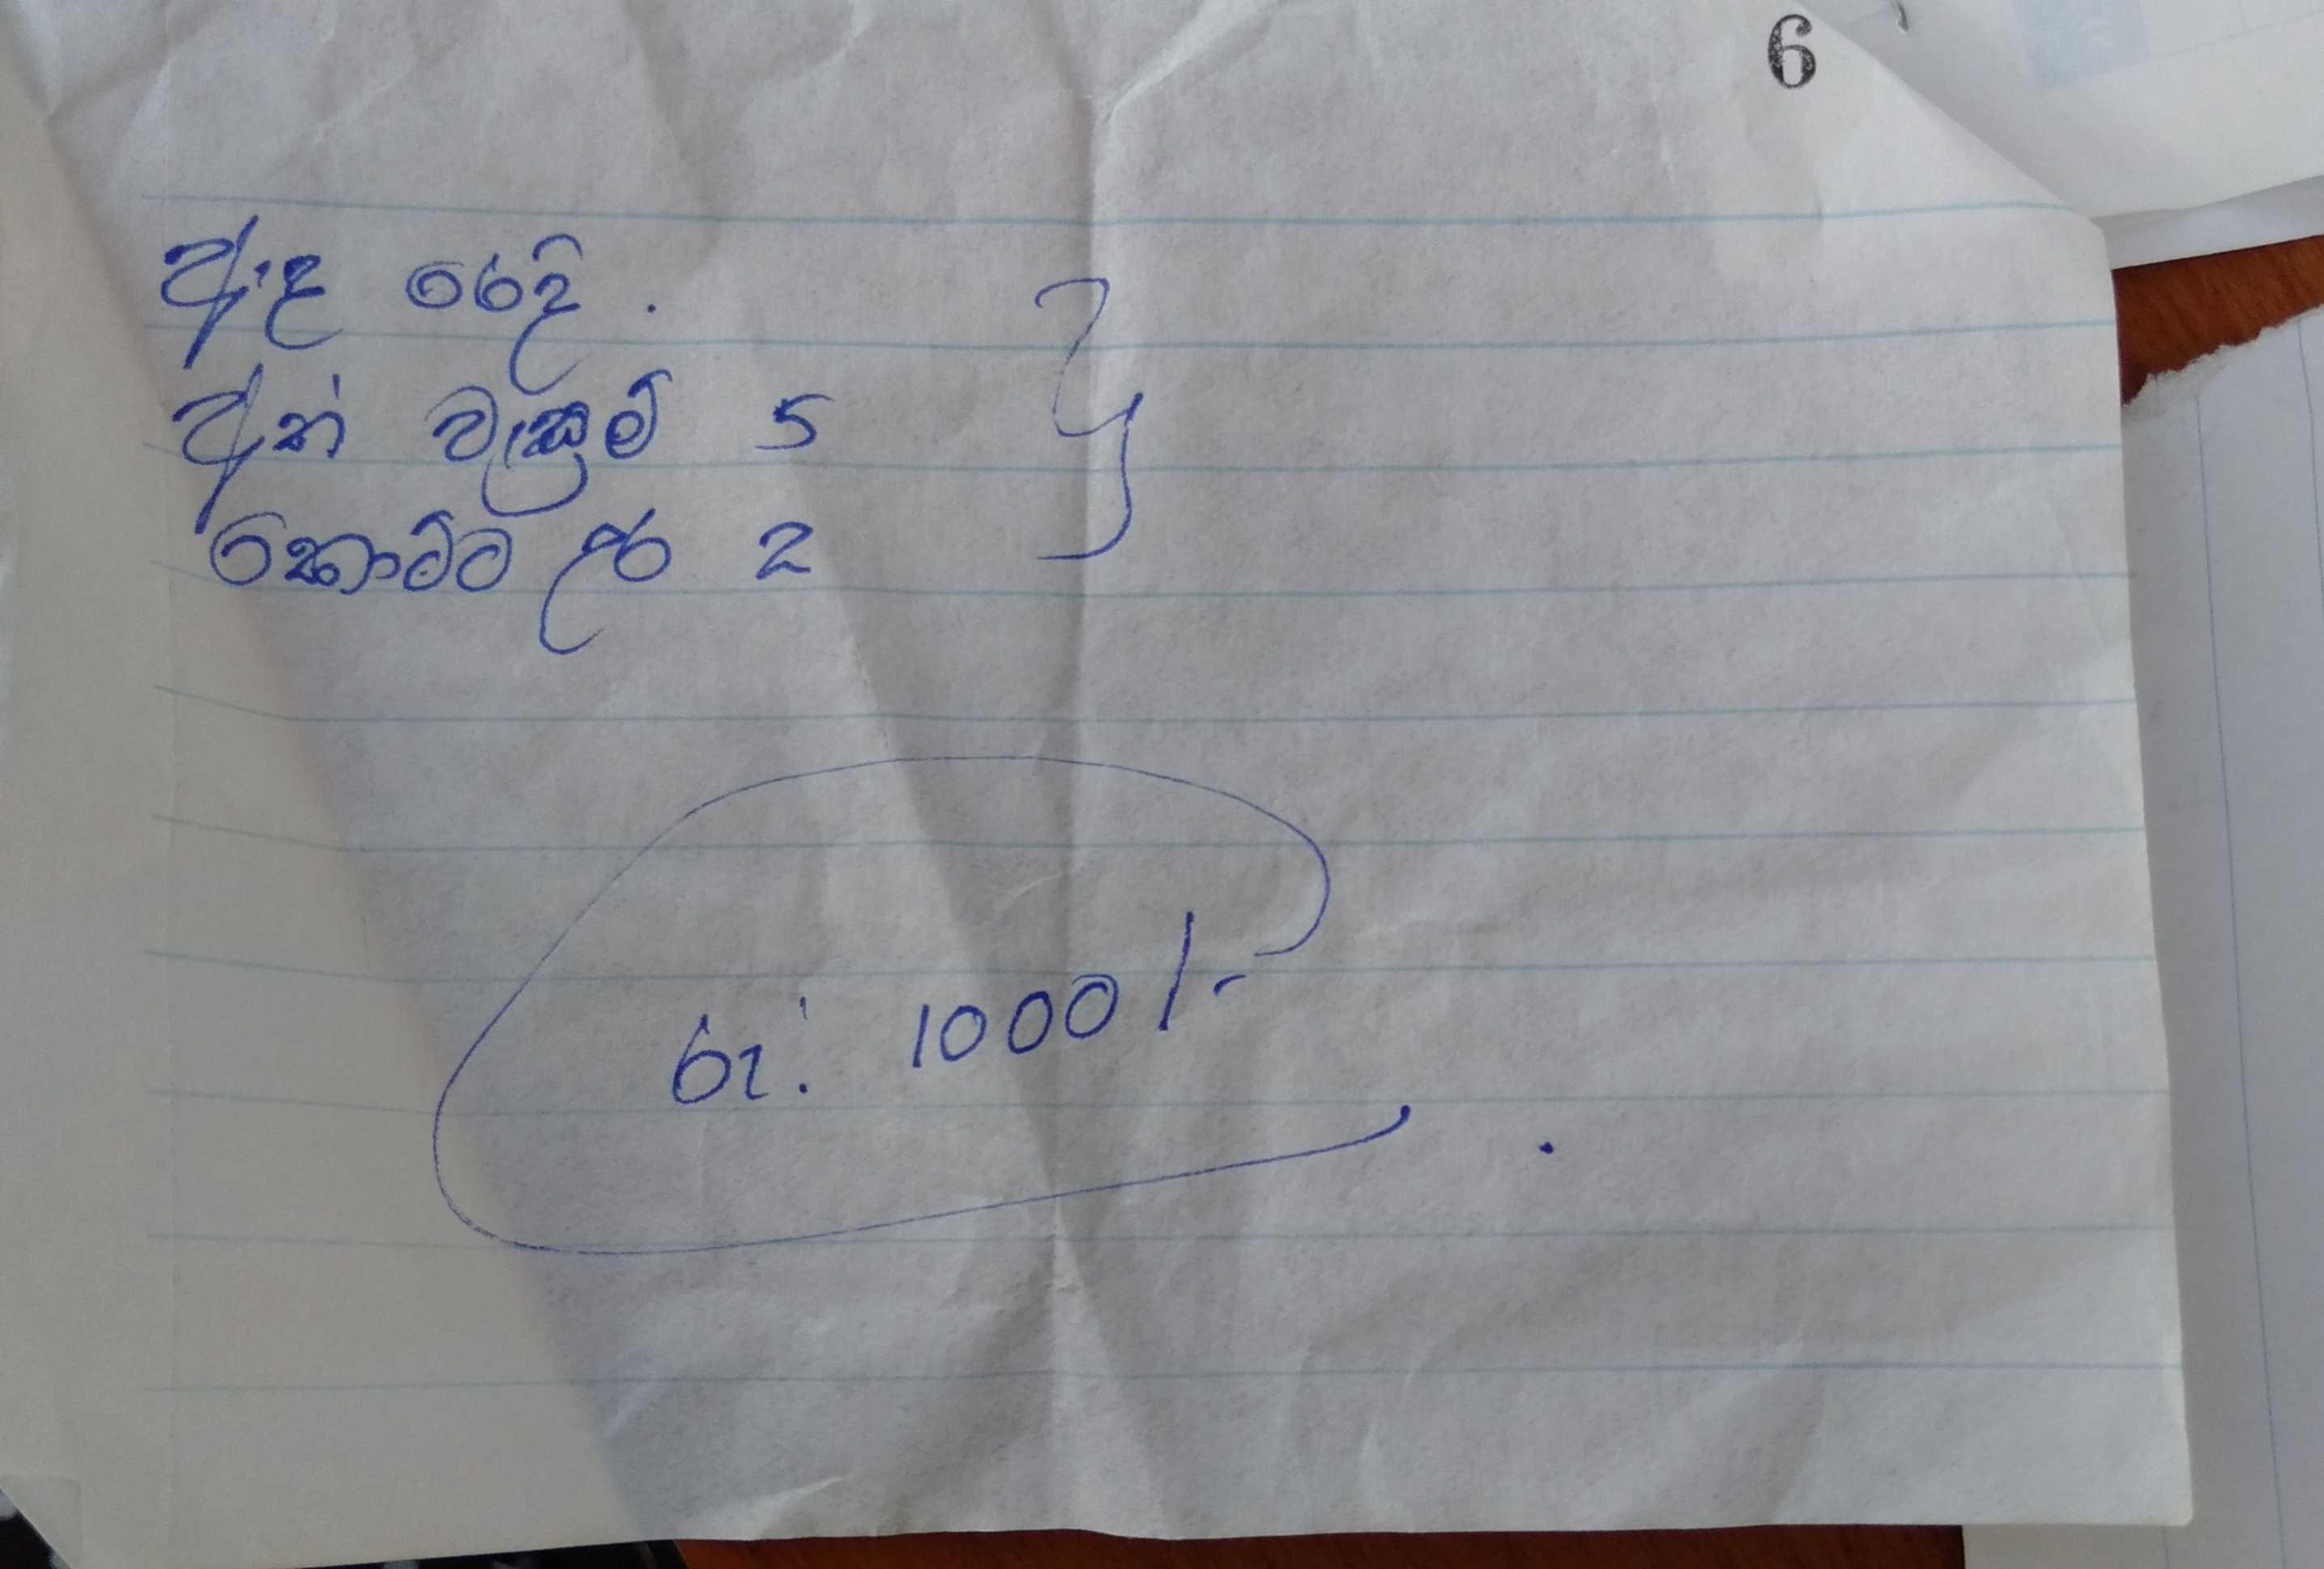 6
ඇඳ රෙදි.
අත් වැසුම් 5
කොට්ට උර 2
රු: 1000/-